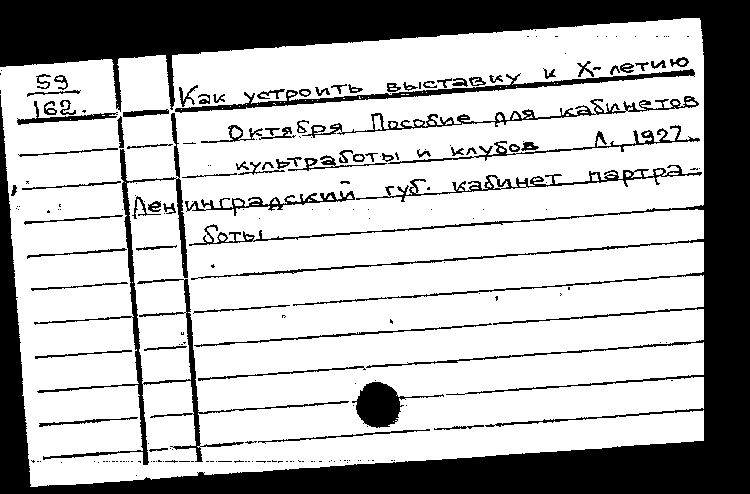 59
162.
Как устроить выставку к X-летию
Октября. Пособие для кабинетов
культработы и клубов Л., 1927.
Ленинградский губ. кабинет партра-
боты